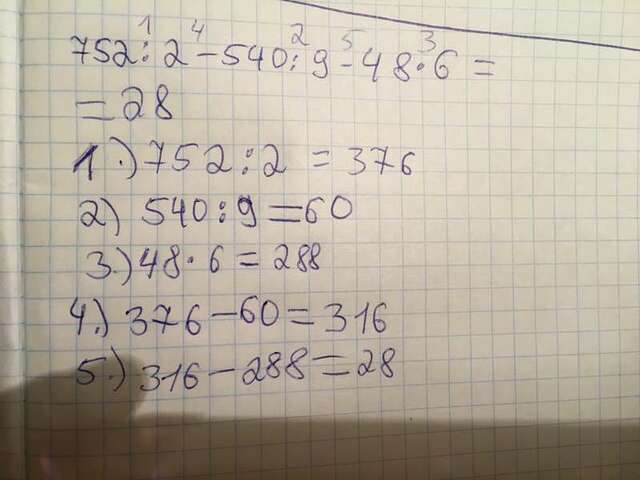 1 4 2 5 3
752:2-540:9-48·6=
=28
1.) 752:2=376
2) 540:9=60
3.) 48·6=288
4.) 376-60=316
5.) 316-288=28